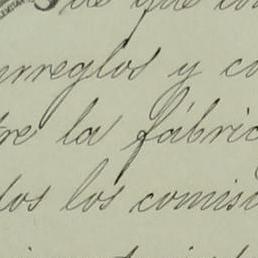 de que con
arreglos y co
re la fábric
dos los comisi